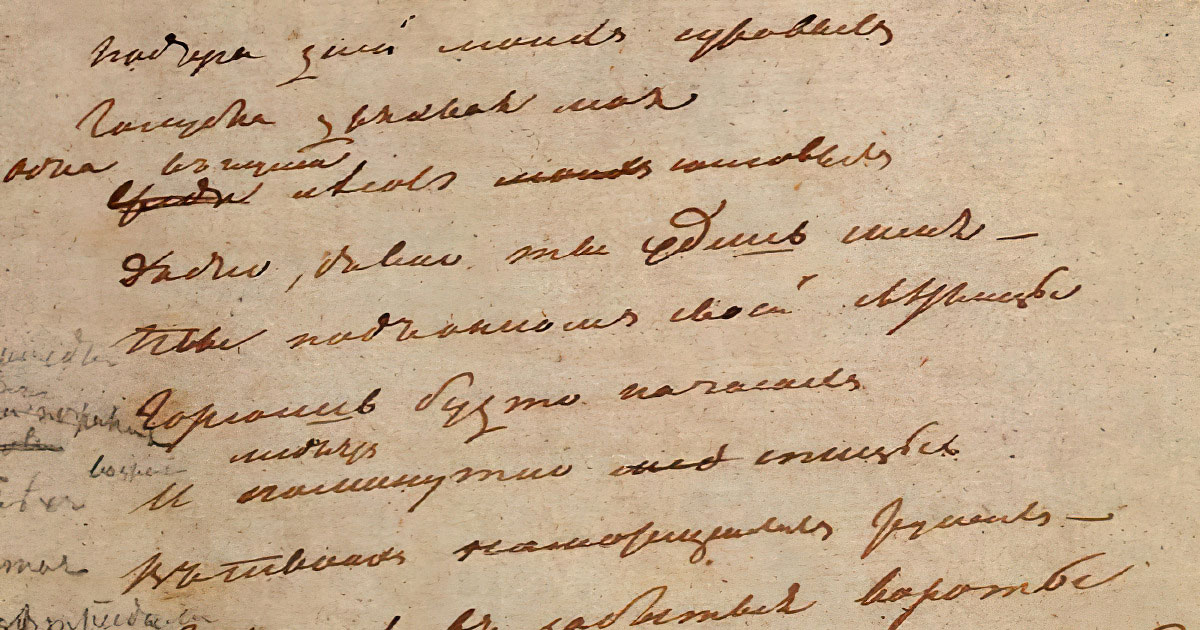 Подруга дней моихъ суровыхъ
Голубка дряхлая моя
одна въ глуши
лѣсовъ моихъ сосновыхъ
Давно, давно ты ждешь меня —
Ты подъ окномъ своей свѣтлицы
Горюешь будто на часахъ
медлятъ
И поминутно спицы
Въ твоихъ наморщенныхъ рукахъ —
въ забытыя вороты